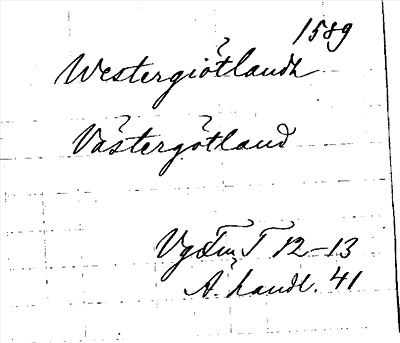 1589
Westergiötlandh
Västergötland
VgFmT 12-13
A. handl. 41